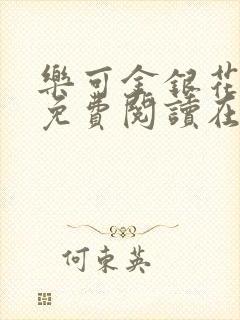 樂可金銀花
免費閱讀在
何東英